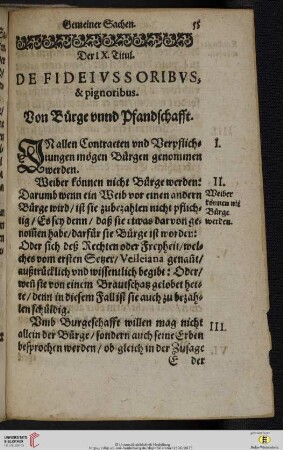 Gemeiner Sachen. 55
Der IX. Titul.
DE FIDEIVSSORIBVS,
& pignoribus.
Von Bürge vnnd Pfandschafft.
IN allen Contracten vnd Verpflich- I.
tungen mögen Bürgen genommen
werden.
Weiber können nicht Bürge werden: II.
Darumb wenn ein Weib vor einen andern Weiber
Bürge wird/ ist sie zubezahlen nicht pflich- können nit
tig/ Es sey denn/ daß sie etwas darvon ge- Bürge
nom̃en habe/ darfür sie Bürge ist worden: werden.
Oder sich deß Rechten oder Freyheit/ wel-
ches vom ersten Setzer/ Velleiana genañt/
außtrücklich vnd wissentlich begibt: Oder/
weñ sie von einem Brautschatz gelobet het-
te/ denn in diesem Fall ist sie auch zu bezah-
len schüldig.
Vmb Burgeschafft willen mag nicht III.
allein der Bürge/ sondern auch seine Erben
besprochen werden/ ob gleich in der Zusage
E der